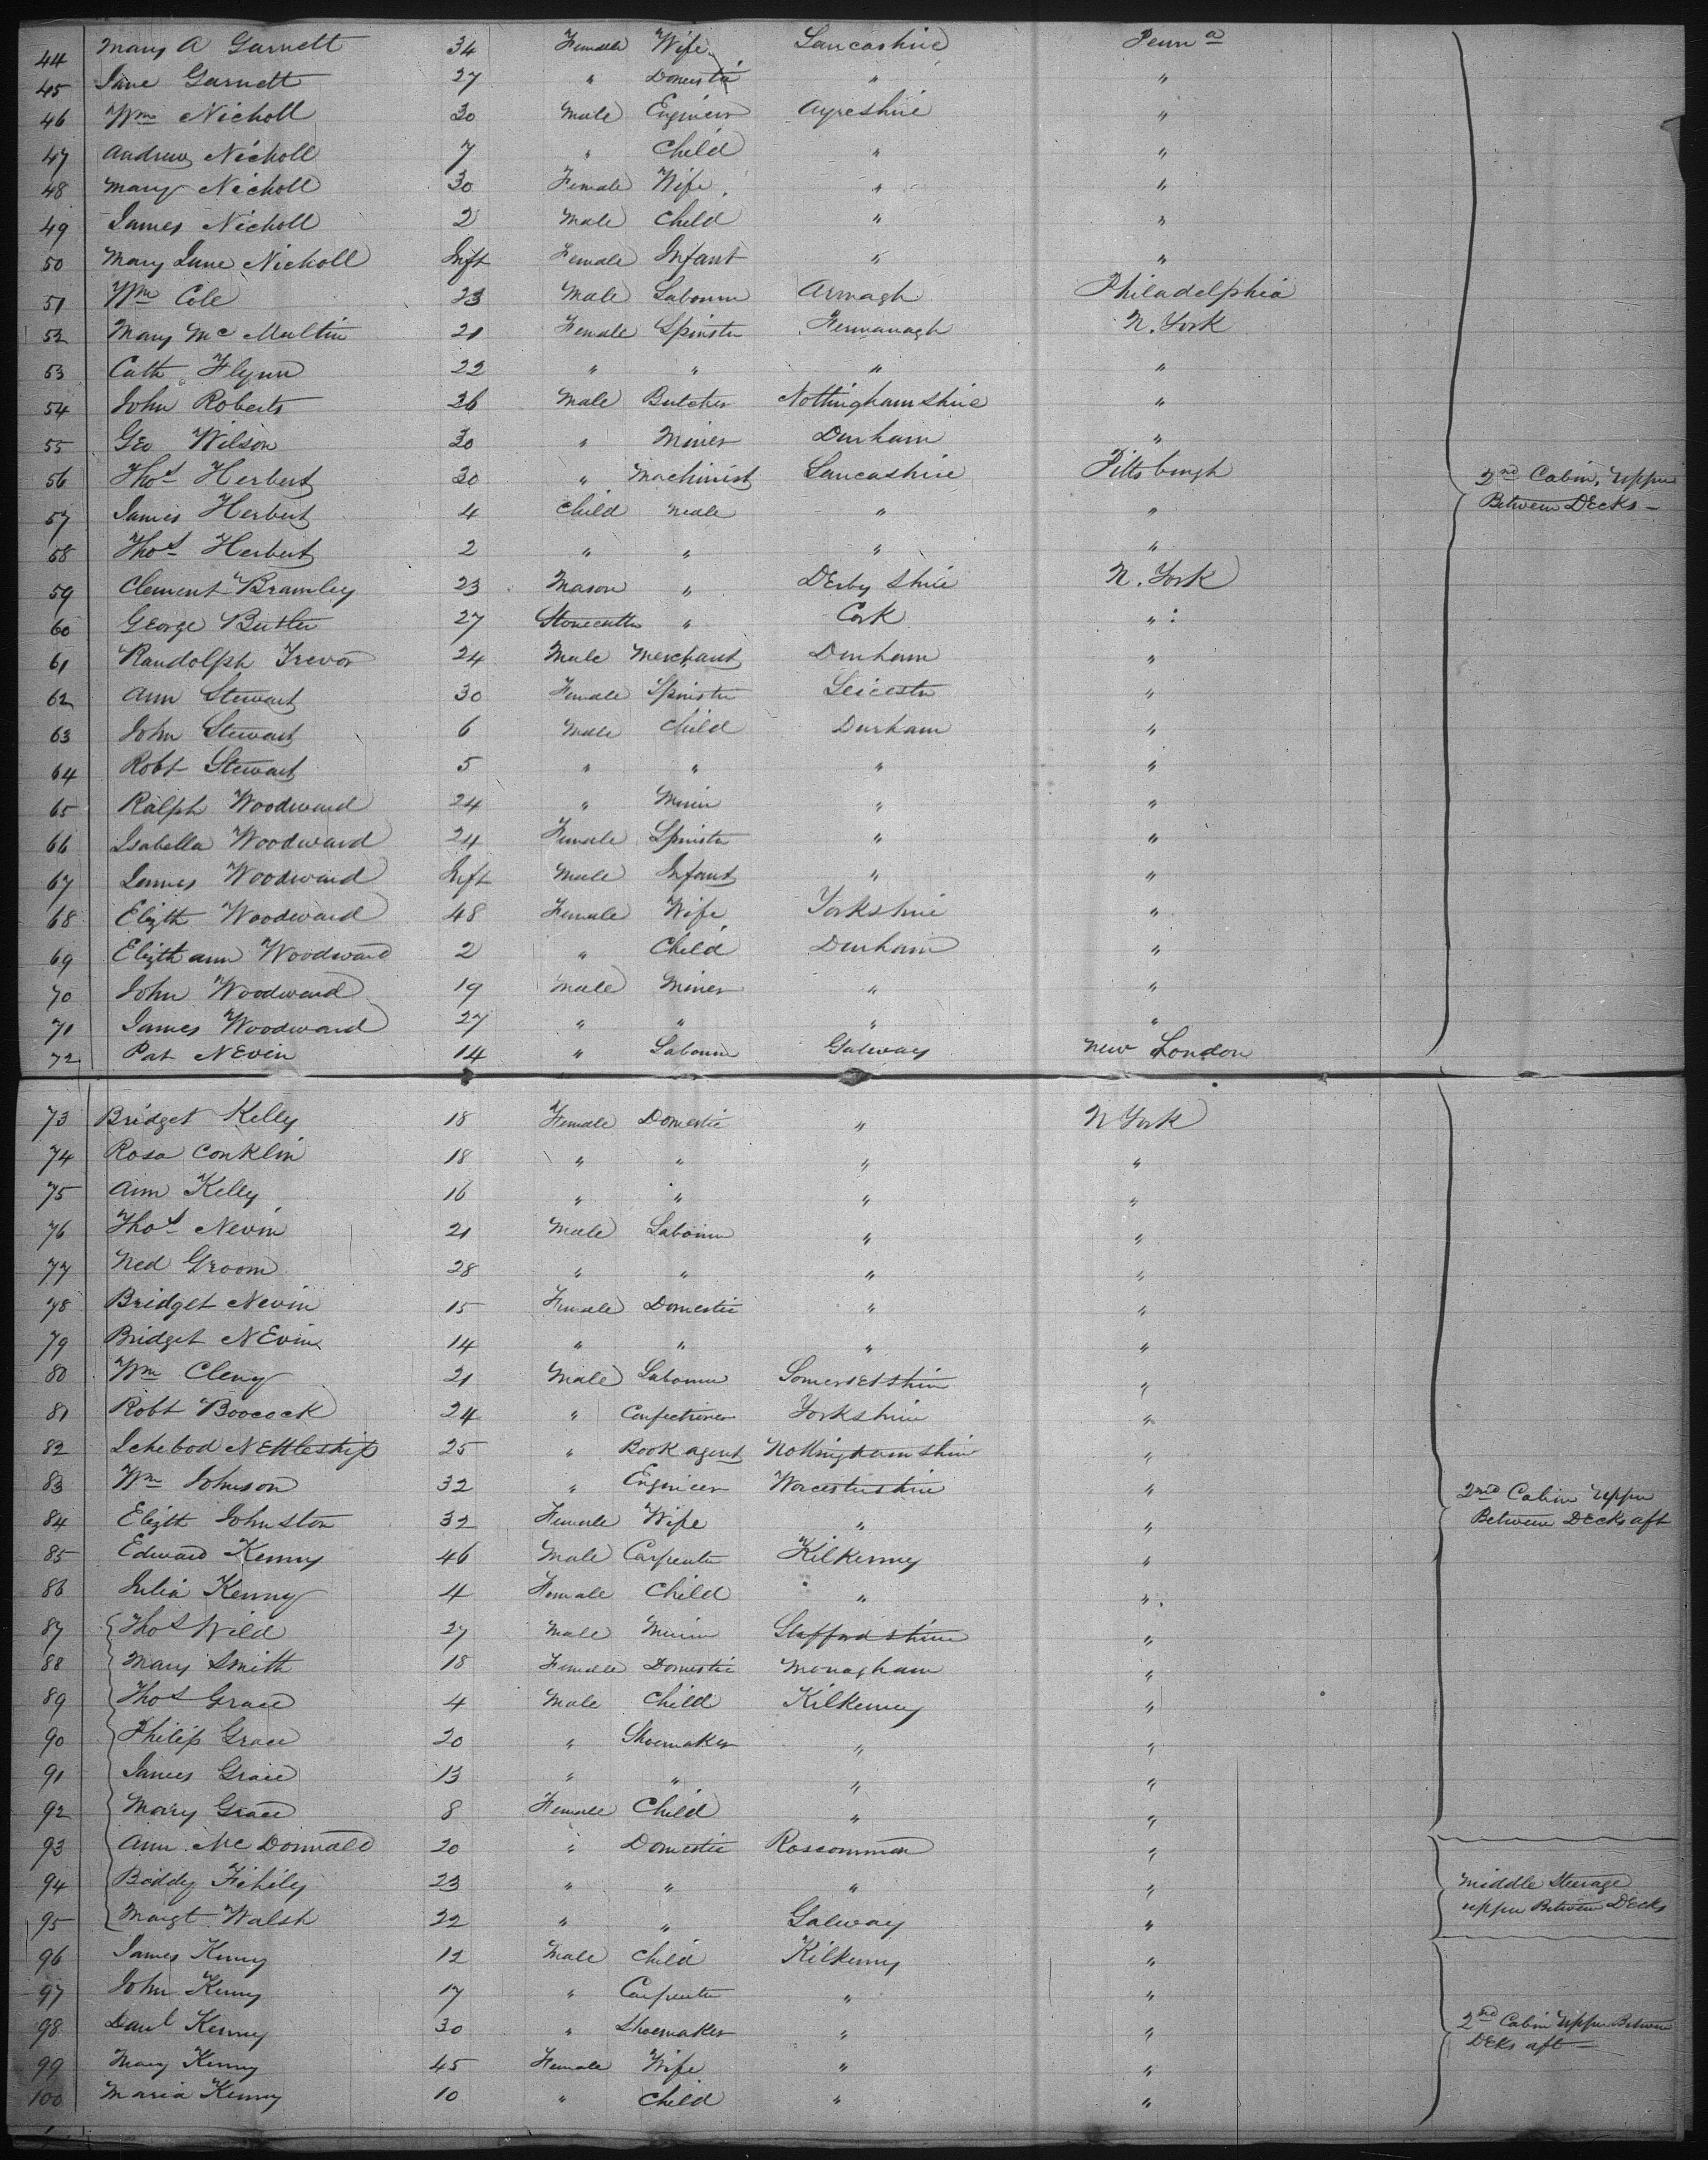 44 Mary A Garnett 34 Female Wife Lancashire Penn a
45 Jane Garnett 27 " Domestic " "
46 Wm Nicholl 30 Male Engineer Ayreshire "
47 Andrew Nicholl 7 " Child " "
48 Mary Nicholl 30 Female Wife " "
49 James Nicholl 2 Male Child " "
50 Mary Jane Nicholl Inft Female Infant " "
51 Wm Cole 23 Male Labourer Armagh Philadelphia
52 Mary Mc Multin 21 Female Spinster Fermanagh N. York
53 Cath Flynn 22 " " " "
54 John Roberts 36 Male Butcher Nottinghamshire "
55 Geo Wilson 30 " Miner Durham "
56 Thos Herbert 30 " Machinist Lancashire Pittsburgh
2nd Cabin, Upper
57 James Herbert 4 Child Male " "
Between Decks -
58 Thos Herbert 2 " " " "
59 Clement Bramley 23 Mason " Derby Shire N. York
60 George Butler 27 Stonecutter " Cork "
61 Randolph Trevor 24 Male Merchant Durham "
62 Ann Stewart 30 Female Spinster Leicester "
63 John Stewart 6 Male Child Durham "
64 Robt Stewart 5 " " " "
65 Ralph Woodward 24 " Miner " "
66 Isabella Woodward 24 Female Spinster " "
67 James Woodward Inft Male Infant " "
68 Elizth Woodward 48 Female Wife Yorkshire "
69 Elizth Ann Woodward 2 " Child Durham "
70 John Woodward 19 Male Miner " "
71 James Woodward 27 " " " "
72 Pat Nevin 14 " Labourer Galway New London
73 Bridget Kelly 18 Female Domestic " N York
74 Rosa Conklin 18 " " " "
75 Ann Kelly 16 " " " "
76 Thos Nevin 21 Male Labourer " "
77 Ned Groom 28 " " " "
78 Bridget Nevin 15 Female Domestic " "
79 Bridget Nevin 14 " " " "
80 Wm Cleny 21 Male Labourer Somersetshire "
81 Robt Boocock 24 " Confectioner Yorkshire "
82 Ichebod Nettleship 25 " Book agent Nottinghamshire "
83 Wm Johnson 32 " Engineer Worcestershire "
2nd Cabin Upper
84 Elizth Johnston 32 Female Wife " "
Between Decks aft
85 Edward Kenny 46 Male Carpenter Kilkenny "
86 Julia Kenny 4 Female Child " "
87 Thos Wild 27 Male Miner Staffordshire "
88 Mary Smith 18 Female Domestic Monaghan "
89 Thos Grace 4 Male Child Kilkenny "
90 Philip Grace 20 " Shoemaker " "
91 James Grace 13 " " " "
92 Mary Grace 8 Female Child " "
93 Ann Mc Donnald 20 " Domestic Roscommon "
94 Biddy Fihily 23 " " " "
Middle Steerage
95 Margt Walsh 22 " " Galway "
upper Between Decks
96 James Kenny 12 Male Child Kilkenny "
97 John Kenny 17 " Carpenter " "
98 Danl Kenny 30 " Shoemaker " "
2nd Cabin Upper Between
Decks aft -
99 Mary Kenny 45 Female Wife " "
100 Maria Kenny 10 " Child " "